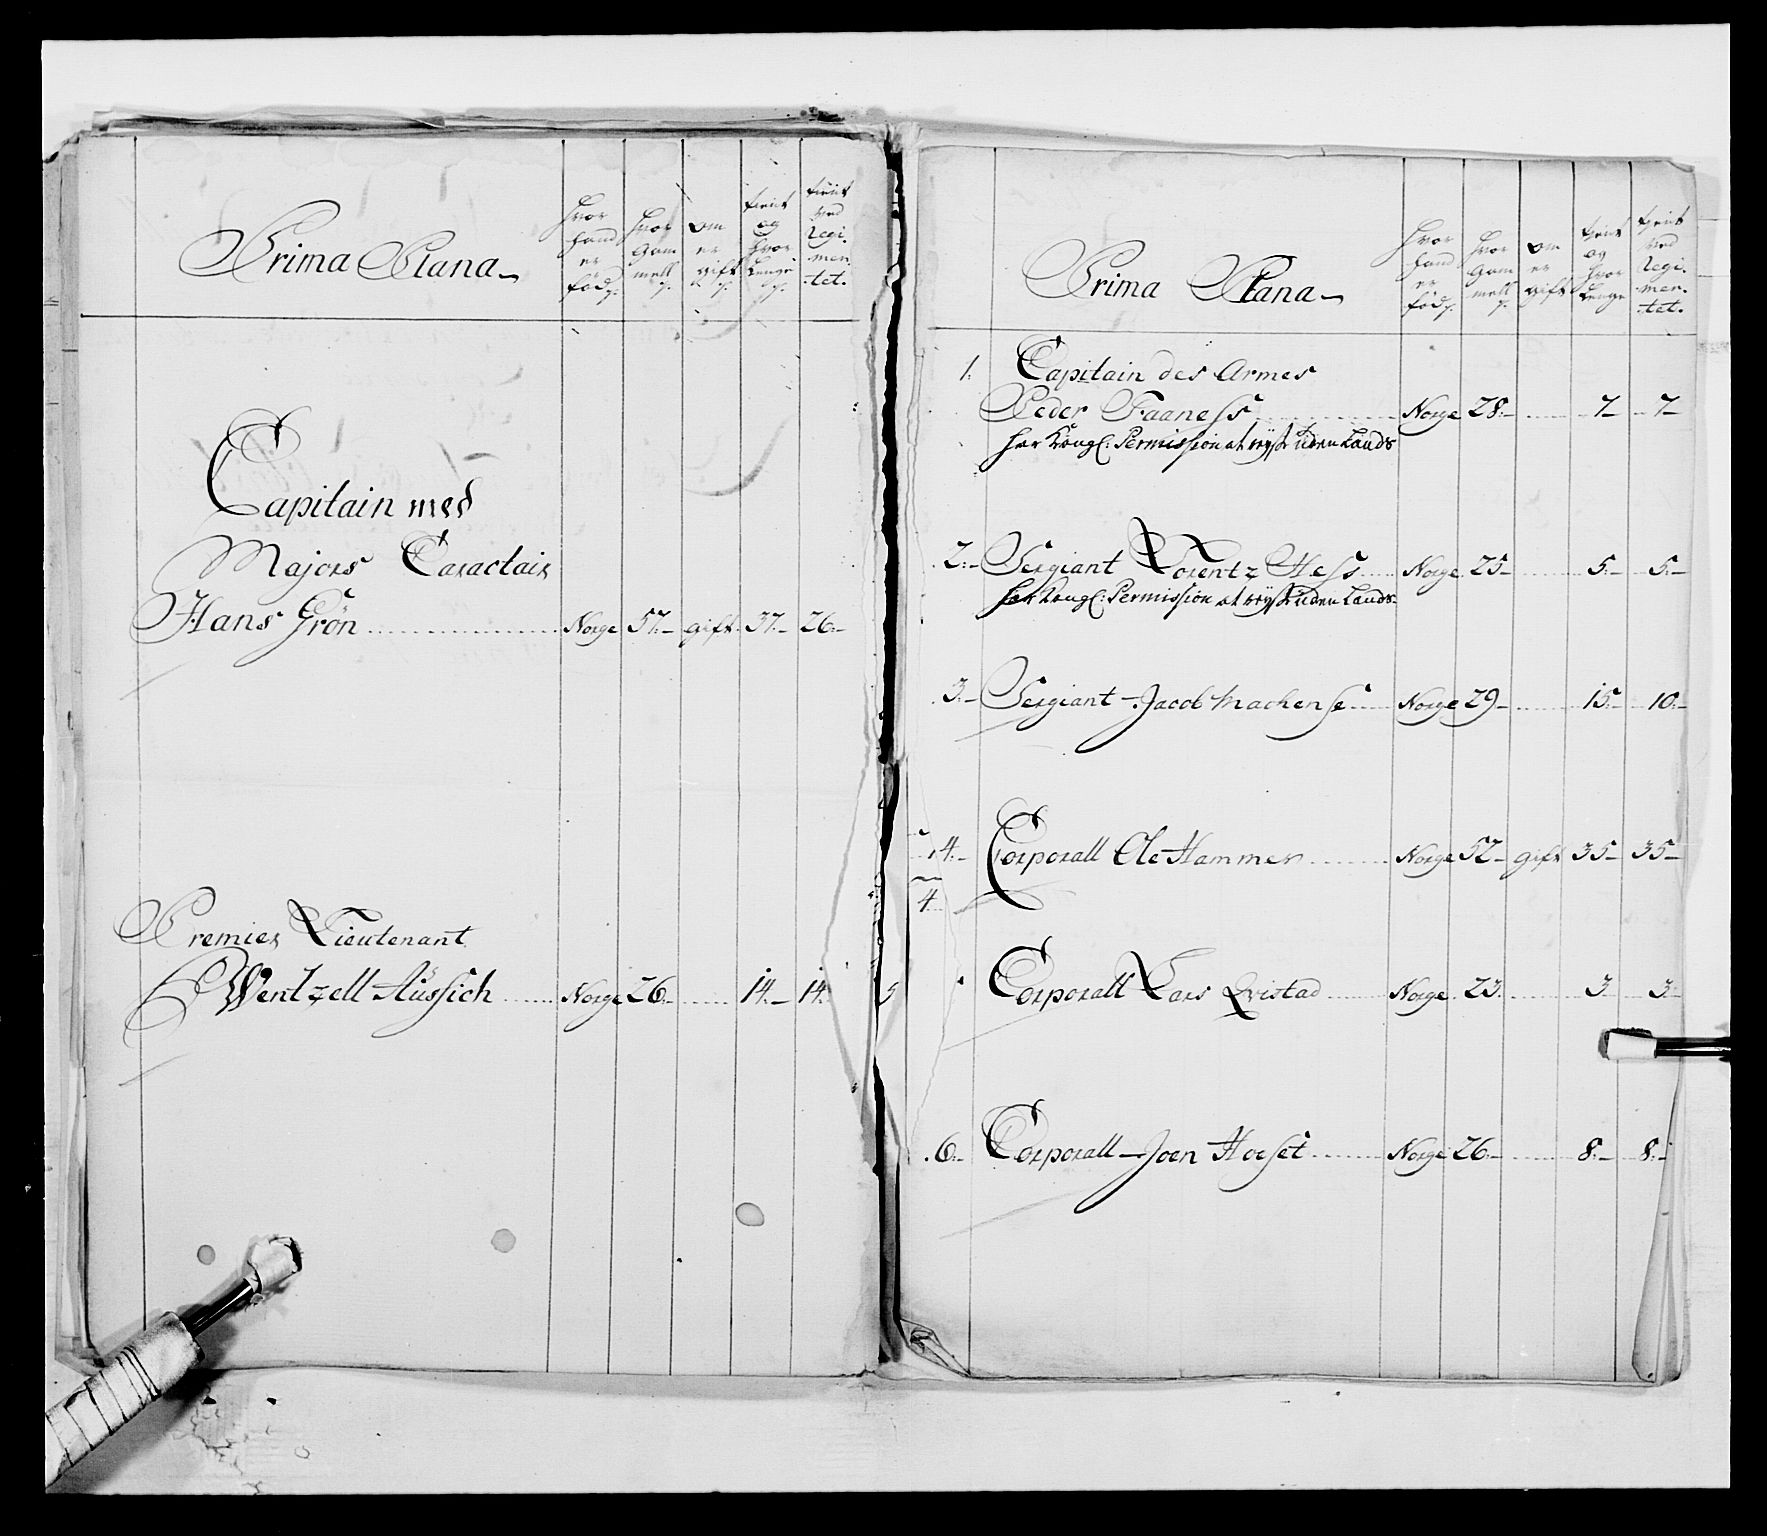 Prima Plana
hvor hand er fød
hvor gam mell
om er gift
tient og hvor Lenge
tient ved Regi- men- tet.
Capitain med
Majors Caractair
Hans Grön Norge 57 gift 37 26
Premier Lieutenant
Wentzell Aüssich Norge 26 14 14
Prima Plana
hvor hand er fød
hvor gam mell
om er gift
tient og hvor Lenge
tient ved Regi- men- tet.
1. Capitain des Armes
Peder Faaness Norge 28 7 7
har Kongl: Permission at reyse uden Lands
2. Sergiant Lorentz Hess Norge 25 5 5
har Kongl: Permission at reyse uden Lands
3. Sergiant Jacob Machense Norge 29 15 10
4. Corporall Ole Hammer Norge 52 gift 35 35
4
5 Corporall Lars Qvistad Norge 23 3 3
6. Corporall Joen Hoeset Norge 26 8 8